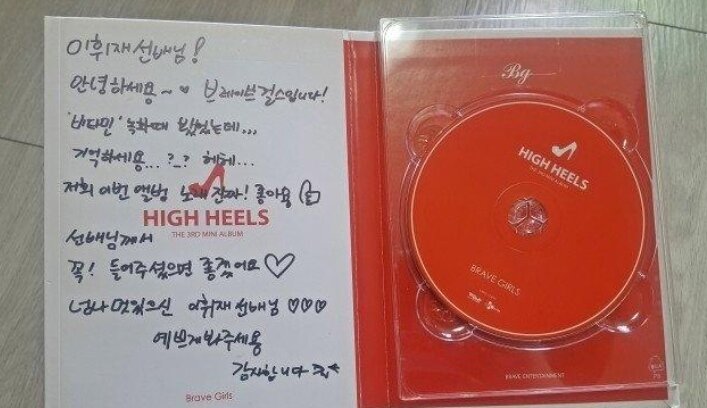 이휘재선배님!
안녕하세용~♡ 브레이브걸스입니다!
'비타민' 녹화때 봤었는데...
기억하세용...?_? 헤헤...
저희 이번 앨범 노래 진짜! 좋아용
HIGH HEELS
THE 3RD MINI ALBUM
선배님께서
꼭! 들어주셨으면 좋겠어요♡
넘나 멋있으신 이휘재선배님 ♡♡♡
예쁘게봐주세용
감사합니다
Brave Girls
Bg
HIGH HEELS
THE 3RD MINI ALBUM
BRAVE GIRLS
BRAVE ENTERTAINMENT